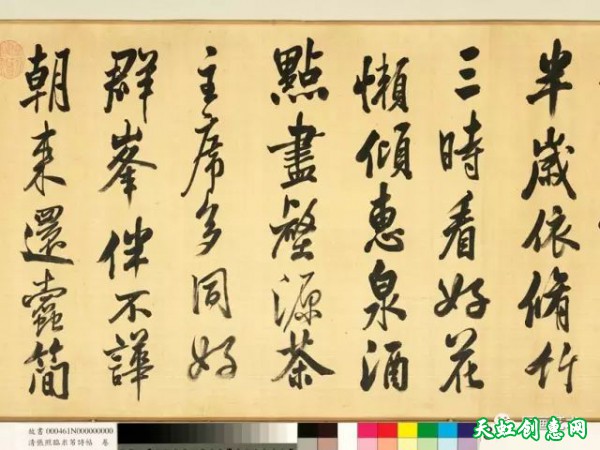 半歲依脩竹
三時看好花
懶傾惠泉酒
點盡壑源茶
主席多同好
群峯伴不譁
朝來還蠹簡
故書 000461N000000000
清張照臨米芾詩帖 卷
天虹创惠网